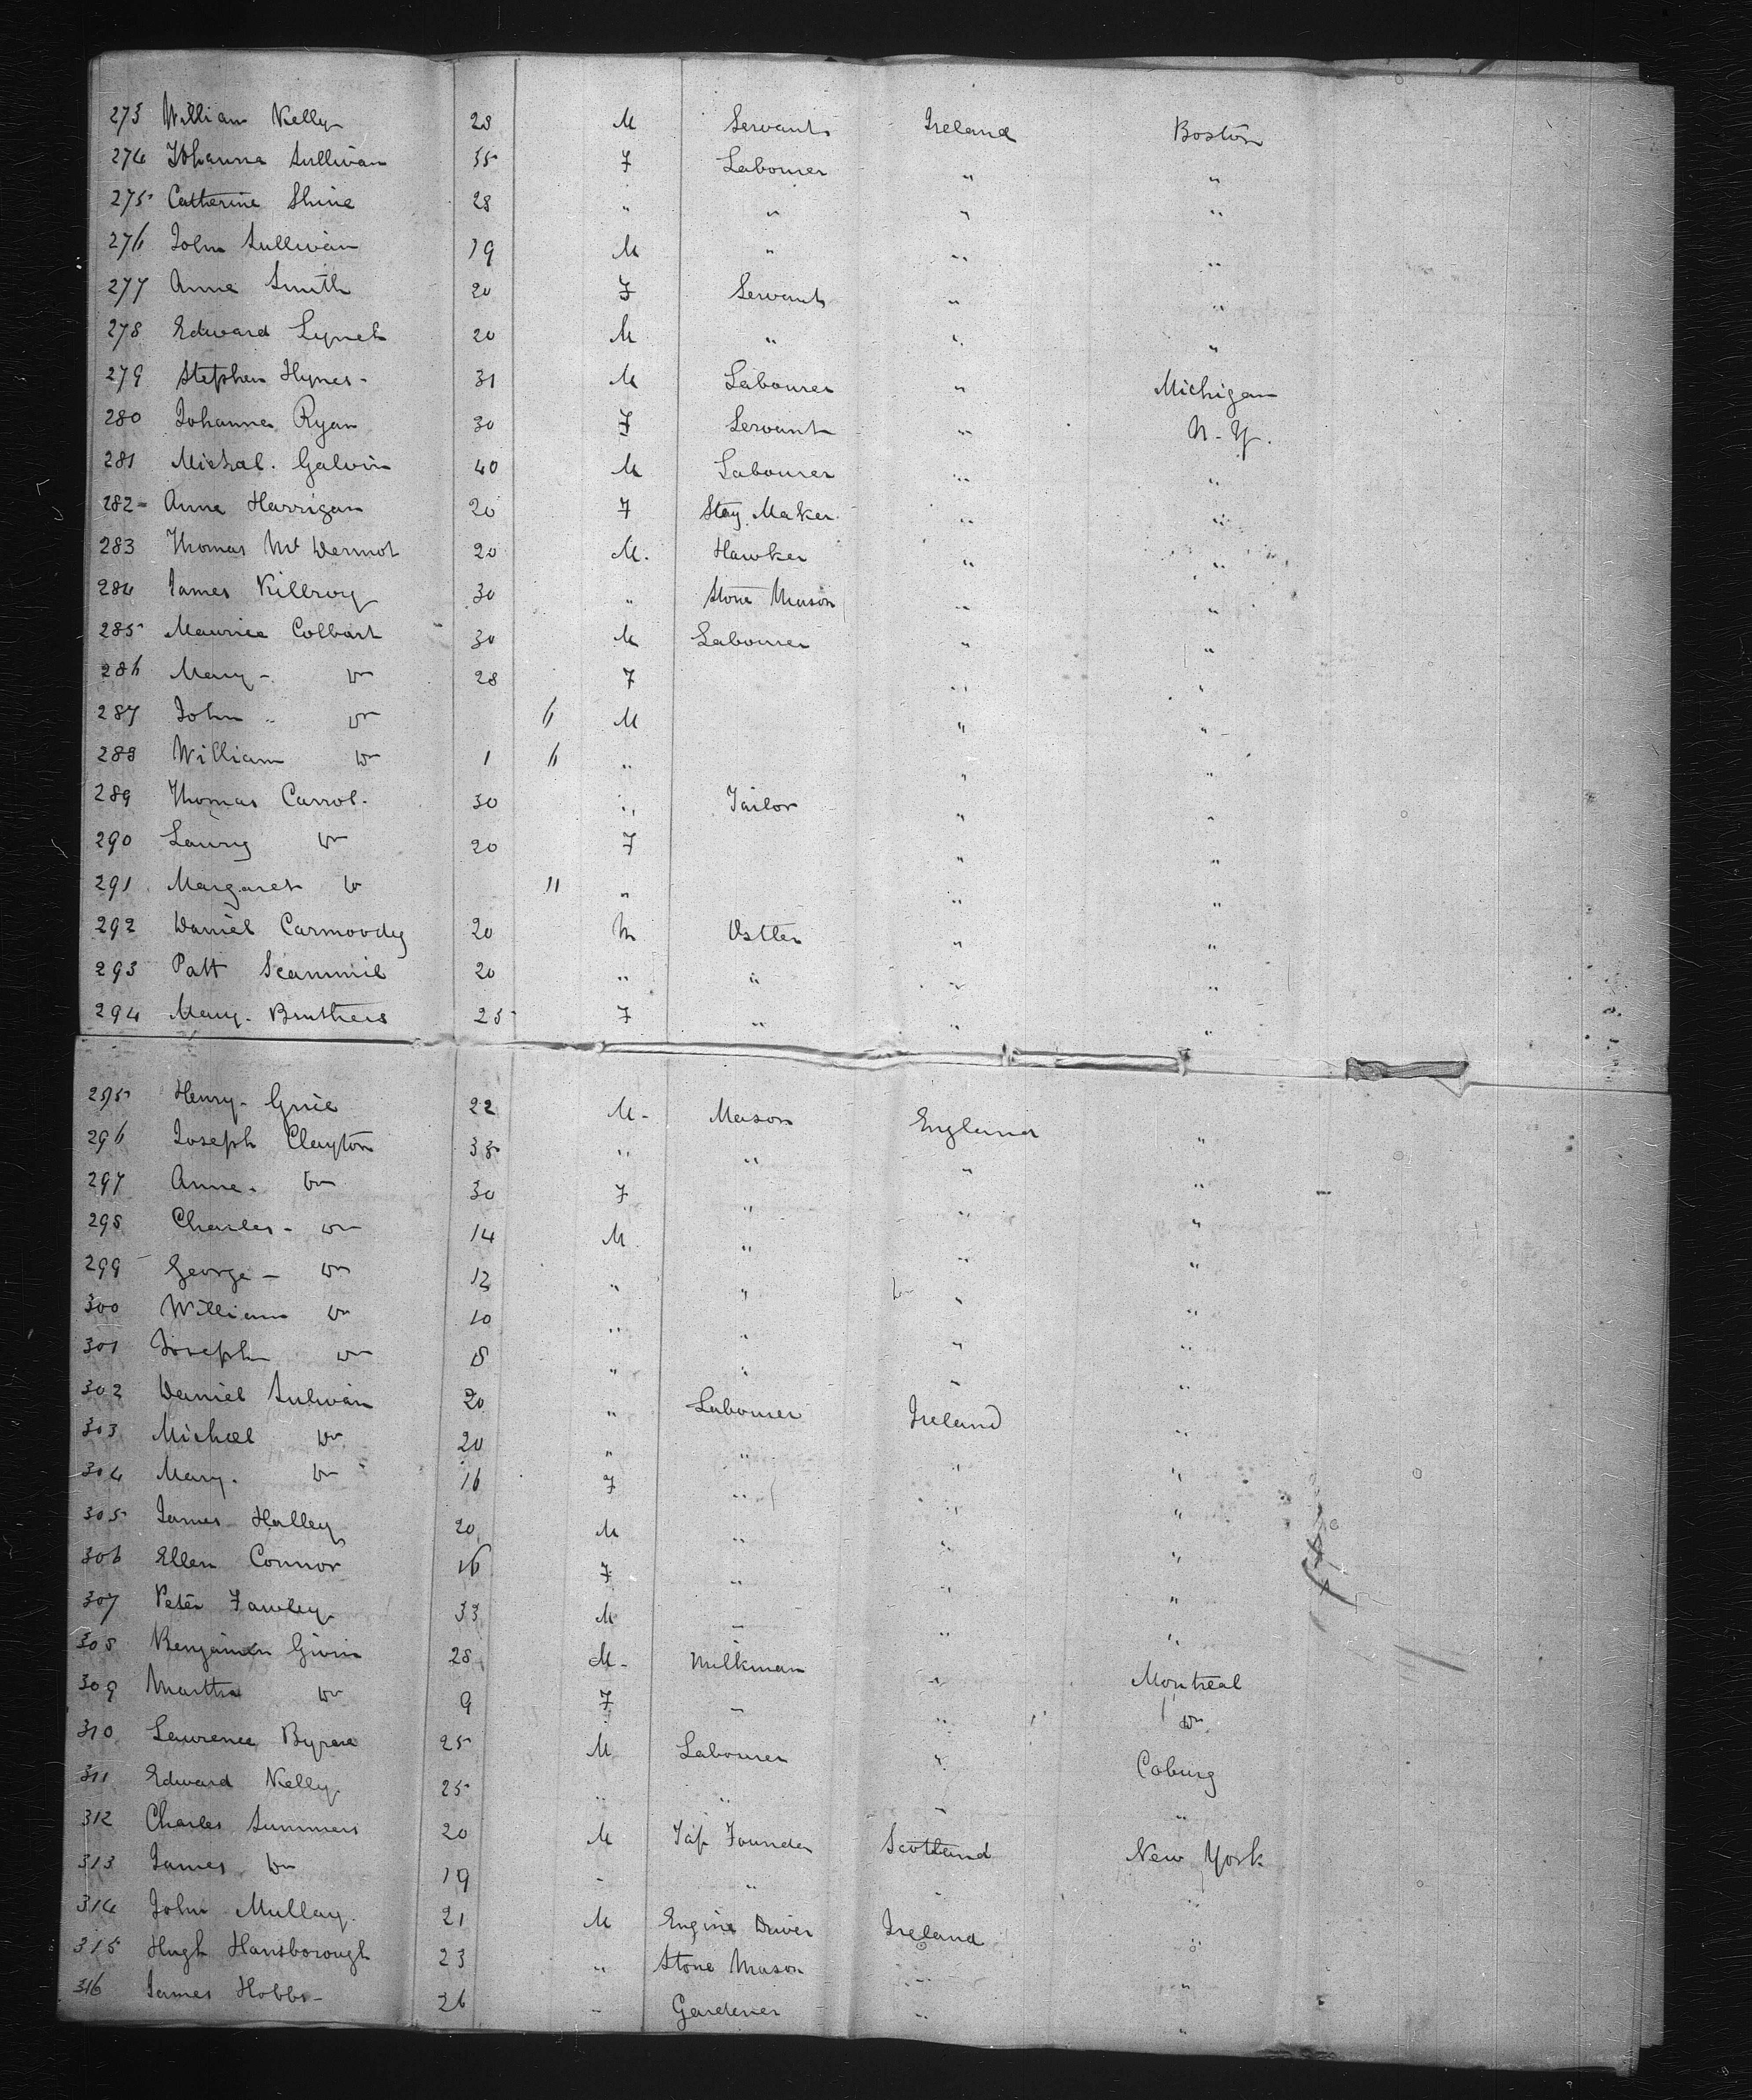 273 William Kelly 28 M Servant Ireland Boston
274 Johanna Sullivan 35 F Labourer " "
275 Catherine Shine 28 " " " "
276 John Sullivan 19 M " " "
277 Anne Smith 20 F Servant " "
278 Edward Lynch 20 M " " "
279 Stephen Hynes - 31 M Labourer " Michigan
280 Johanna Ryan 30 F Servant " N-Y.
281 Michal. Galvin 40 M Labourer " "
282 - Anne Harrigan 20 F Stay Maker " "
283 Thomas Mc Dermot 20 M. Hawker " "
284 James Killroy 30 " Stone Mason " "
285 Maurice Colbart 30 M Labourer " "
286 Mary - Do 28 F " "
287 John - Do 6 M " "
288 William Do 1 6 " " "
289 Thomas Carrol. 30 " Tailor " "
290 Do 20 F " "
291 Margaret Do 11 " " "
292 Daniel Carmoody 20 M Ostler " "
293 Patt Scannnil 20 " " " "
294 Mary. Bruthers 25 F " " "
295 Henry - 22 M - Mason England "
296 Joseph Clayton 38 " " " "
297 Anne - Do 30 F " " "
298 Charles - Do 14 M " " "
299 George - Do 12 " " " "
300 William Do 10 " " " "
301 Joseph Do 8 " " " "
302 Daniel Sulivan 20 " Labourer Ireland "
303 Michael Do 20 " " " "
304 Mary. Do 16 F " " "
305 James Halley 20 M " " "
306 Ellen Connor 16 F " " "
307 Peter Fawley 33 M " " "
308 Benjamin Givin 28 M - Milkman " Montreal
309 Martha Do 9 F " " Do
310 Lawrence Byrne 25 M Labourer " Coburg
311 Edward Kelly 25 " " " "
312 Charles Summers 20 M Tap Founder Scotland New York
313 James Do 19 " " " "
314 John Mullay. 21 M Engine Driver Ireland "
315 Hugh Hansborough 23 " Stone Mason " "
316 James Hobbs - 26 " Gardener " "